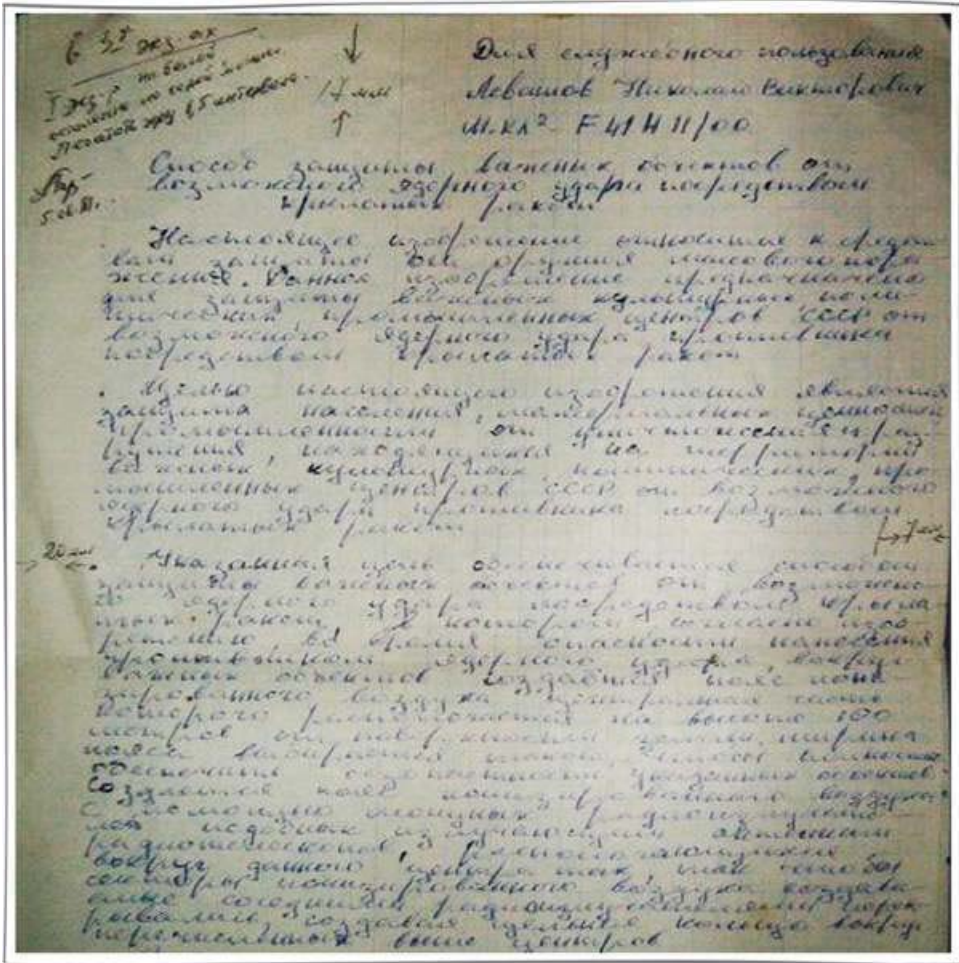 в 3х экз.ах
I экз.
на белой
остальные на серой
Печатать через 1,5 интервала.
17 мм
Для служебного пользования
Левашов Николай Викторович
М.кл² F 41 H 11/00
Способ защиты важных объектов от
возможного ядерного удара посредством
крылатых ракет
Настоящее изобретение относится к средст-
вам защиты от оружия массового пора-
жения. Данное изобретение предназначено
для защиты важных культурных, поли-
тических, промышленных центров СССР от
возможного ядерного удара противника
посредством крылатых ракет
Целью настоящего изобретения является
защита населения, материальных ценностей
промышленности от уничтожения и раз-
рушения, находящихся на территории
важных, культурных политических, про-
мышленных центров СССР от возможного
ядерного удара противника посредством
крылатых ракет
20 мм
7 мм
Указанная цель обеспечивается способом
защиты важных объектов от возможно-
го ядерного удара посредством крыла-
тых ракет, в котором согласно изо-
бретению во время опасности нанесения
противником ядерного удара, вокруг
важных объектов создаётся пояс иони-
зированного воздуха центральная часть
которого располагается на высоте 100
метров от поверхности земли, ширина
пояса выбирается такой, чтобы
обеспечить безопасность указанных объектов.
Создаётся пояс ионизированного воздуха
с помощью мощных радиоизлучате-
лей подобных излучающим антеннам
радиотелескопов, располагающихся
вокруг данного центра так, чтобы
секторы ионизированного воздуха создава-
емые соседними радиоизлучателями перек-
рывались, создавая цельное кольцо вокруг
перечисленных выше центров